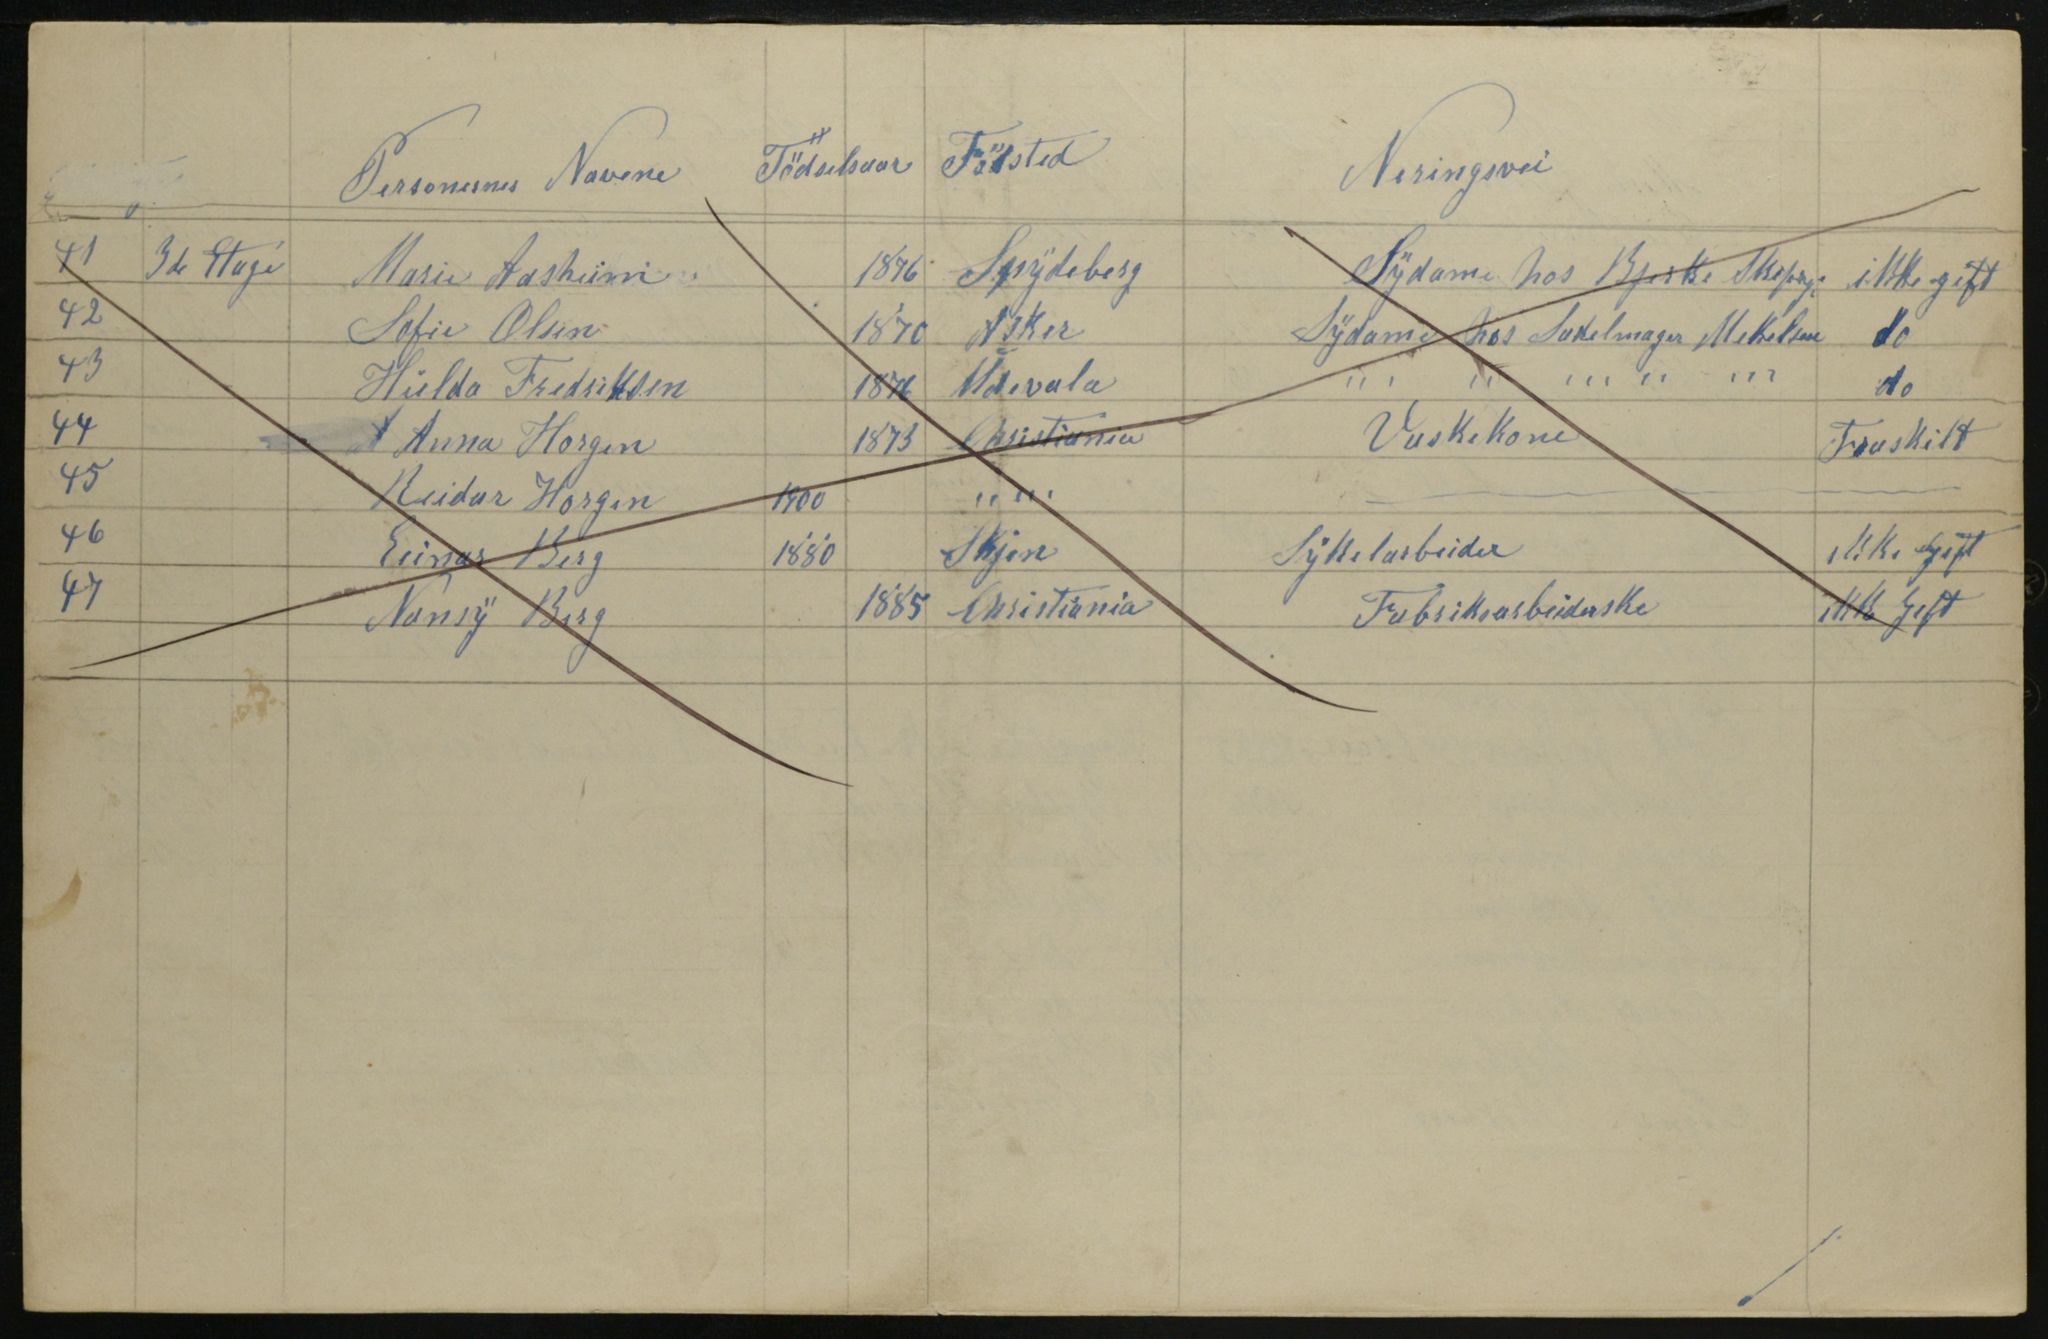 Personernes Navene Födselsaar Födsted Neringsvei
41 3de Etage Marie Aasheim 1876 Spÿdeberg Sÿdame hos Bjerke ikke gift
42 Sofie Olsen 1870 Asker Sÿdame hos Sadelmager do
43 Hielda Fredriksen 1876 Udevala " " " " " do
44 Anna Horgen 1873 Christiania Vaskekone Fraskilt
45 Reidar Horgen 1900 " "
46 Einar Berg 1880 Skjen Sÿkelarbeider ikke Gift
47 Nansÿ Berg 1885 Christiania Fabrikarbeiderske ikke Gift